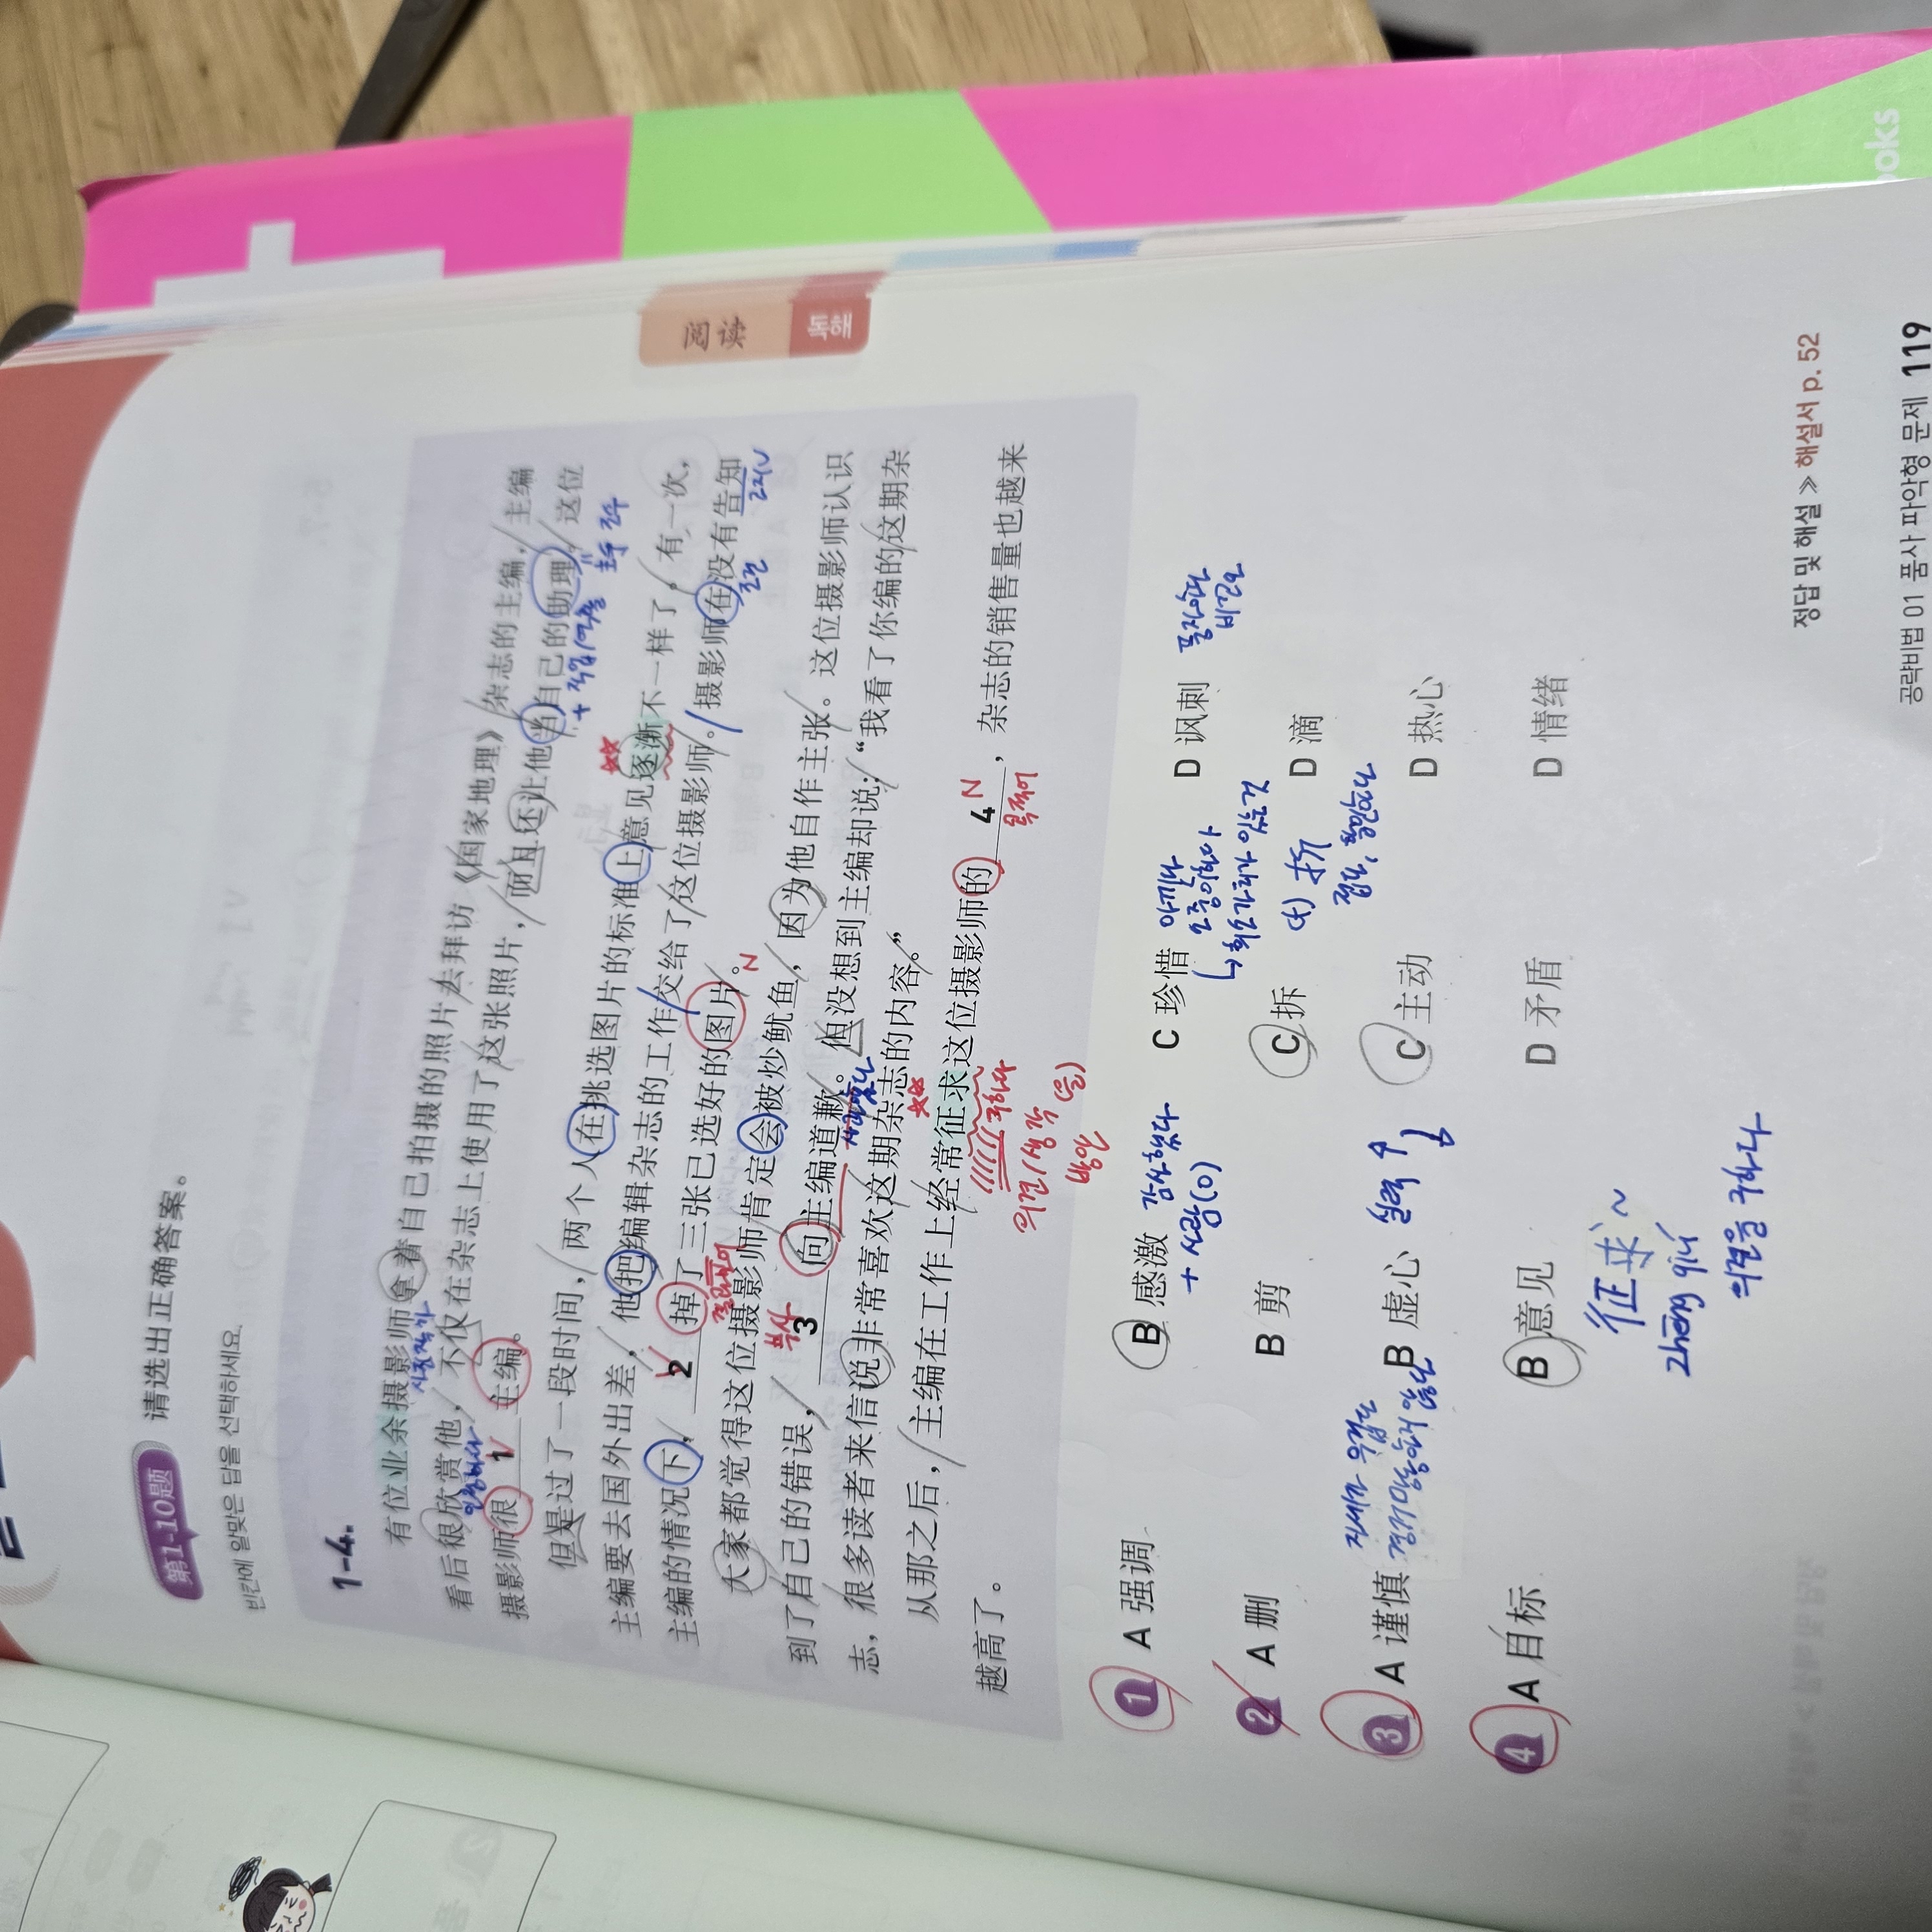 第1-10题 请选出正确答案。
빈칸에 알맞은 답을 선택하세요.
1-4.
有位业余摄影师拿着自己拍摄的照片去拜访《国家地理》杂志的主编，主编
看后很欣赏他，不仅在杂志上使用了这张照片，而且还让他当自己的助理，这位
+ 직업/역할
摄影师很 1 主编。
V
但是过了一段时间，两个人在挑选图片的标准上意见逐渐不一样了。有一次，
主编要去国外出差，他把编辑杂志的工作交给了这位摄影师。摄影师在没有告知
主编的情况下，2 掉了三张已选好的图片。
결과보어
N
조건
고지V
大家都觉得这位摄影师肯定会被炒鱿鱼，因为他自作主张。这位摄影师认识
到了自己的错误，3 向主编道歉。但没想到主编却说：“我看了你编的这期杂
부사
사과했다
志，很多读者来信说非常喜欢这期杂志的内容。”
从那之后，主编在工作上经常征求这位摄影师的 4 ，杂志的销售量也越来
구하다
N
목적어
의견/생각 (을)
방안
越高了。
1 A 强调 B 感激 C 珍惜 D 讽刺
감사했다
+ 사람(O)
아끼다
소중히하다
풍자한다
비꼬다
2 A 删 B 剪 C 拆 D 滴
3 A 谨慎 B 虚心 C 主动 D 热心
실력 ↑
4 A 目标 B 意见 D 矛盾 D 情绪
征求~
zhēng qiú
의견을 구하다
阅读
독해
정답 및 해설 ≫ 해설서 p. 52
공략비법 01 품사 파악형 문제 119
ooks